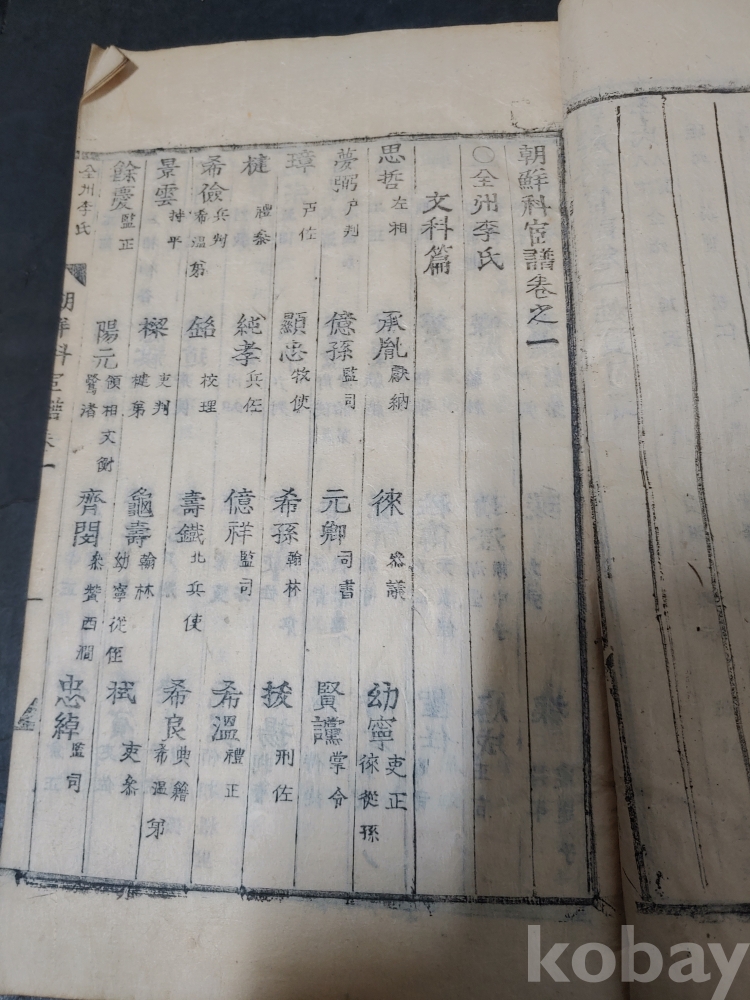 朝鮮科宦譜卷之一
○全州李氏
文科篇
思哲 左相 承胤 獻納 徠 參議 幼寧 吏正 徠從孫
夢弼 户判 億孫 監司 元卿 司書 賢讜 掌令
璋 戶佐 顯忠 牧使 希孫 翰林 援 刑佐
楗 禮參 純孝 兵佐 億祥 監司 希溫 禮正
希儉 兵判 希溫弟 鉿 校理 壽鐵 北兵使 希良 典籍 希溫弟
景雲 持平 樑 吏判 楗弟 龜壽 翰林 幼寧從侄 拭 吏參
餘慶 監正 陽元 領相 文衡 鷺渚 齊閔 參贊 西澗 忠綽 監司
全州李氏
朝鮮科宦譜 卷一
一
kobay